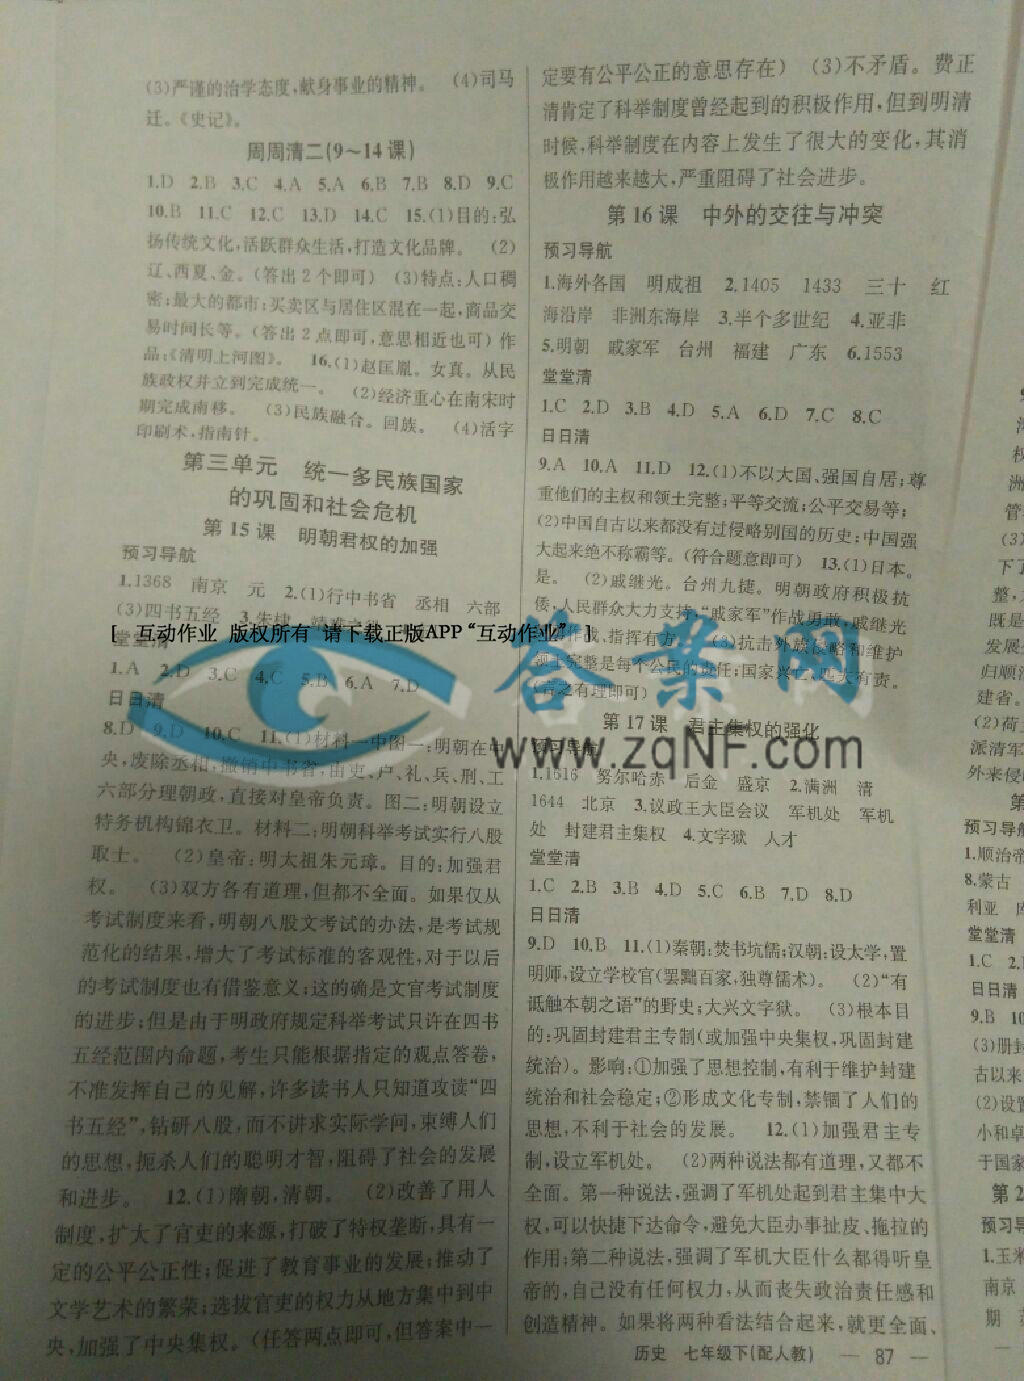 (3)严谨的治学态度,献身事业的精神。 (4)司马
迁。《史记》。
周周清二(9～14课)
1.D 2.B 3.C 4.A 5.A 6.B 7.B 8.D 9.C
10.B 11.C 12.C 13.D 14.C 15.(1)目的:弘
扬传统文化,活跃群众生活,打造文化品牌。 (2)
辽、西夏、金。(答出2个即可) (3)特点:人口稠
密;最大的都市;买卖区与居住区混在一起,商品交
易时间长等。(答出2点即可,意思相近也可)作
品:《清明上河图》。 16.(1)赵匡胤。女真。从民
族政权并立到完成统一。 (2)经济重心在南宋时
期完成南移。 (3)民族融合。回族。 (4)活字
印刷术,指南针。
第三单元 统一多民族国家
的巩固和社会危机
第15课 明朝君权的加强
预习导航
1.1368 南京 元 2.(1)行中书省 丞相 六部
(3)四书五经 3.朱棣 靖难之役
[ 互动作业 版权所有 请下载正版APP“互动作业” ]
堂堂清
1.A 2.D 3.C 4.C 5.B 6.A 7.D
日日清
8.D 9.D 10.C 11.(1)材料一中图一:明朝在中
央,废除丞相,撤销中书省,由吏、户、礼、兵、刑、工
六部分理朝政,直接对皇帝负责。图二:明朝设立
特务机构锦衣卫。材料二:明朝科举考试实行八股
取士。 (2)皇帝:明太祖朱元璋。目的:加强君
权。 (3)双方各有道理,但都不全面。如果仅从
考试制度来看,明朝八股文考试的办法,是考试规
范化的结果,增大了考试标准的客观性,对于以后
的考试制度也有借鉴意义;这的确是文官考试制度
的进步;但是由于明政府规定科举考试只许在四书
五经范围内命题,考生只能根据指定的观点答卷,
不准发挥自己的见解,许多读书人只知道攻读“四
书五经”,钻研八股,而不讲求实际学问,束缚人们
的思想,扼杀人们的聪明才智,阻碍了社会的发展
和进步。 12.(1)隋朝,清朝。 (2)改善了用人
制度,扩大了官吏的来源,打破了特权垄断,具有一
定的公平公正性;促进了教育事业的发展;推动了
文学艺术的繁荣;选拔官吏的权力从地方集中到中
央,加强了中央集权。(任答两点即可,但答案中一
定要有公平公正的意思存在) (3)不矛盾。费正
清肯定了科举制度曾经起到的积极作用,但到明清
时候,科举制度在内容上发生了很大的变化,其消
极作用越来越大,严重阻碍了社会进步。
第16课 中外的交往与冲突
预习导航
1.海外各国 明成祖 2.1405 1433 三十 红
海沿岸 非洲东海岸 3.半个多世纪 4.亚非
5.明朝 戚家军 台州 福建 广东 6.1553
堂堂清
1.C 2.D 3.B 4.D 5.A 6.D 7.C 8.C
日日清
9.A 10.A 11.D 12.(1)不以大国、强国自居;尊
重他们的主权和领土完整;平等交流;公平交易等;
(2)中国自古以来都没有过侵略别国的历史;中国强
大起来绝不称霸等。(符合题意即可) 13.(1)日本。
是。 (2)戚继光。台州九捷。明朝政府积极抗
倭,人民群众大力支持,“戚家军”作战勇敢,戚继光
作战,指挥有方。 (3)抗击外族侵略和维护
领土完整是每个公民的责任;国家兴亡,匹夫有责。
(言之有理即可)
答案网
www.zqNF.com
第17课 君主集权的强化
预习导航
1.1616 努尔哈赤 后金 盛京 2.满洲 清
1644 北京 3.议政王大臣会议 军机处 军机
处 封建君主集权 4.文字狱 人才
堂堂清
1.C 2.B 3.B 4.D 5.C 6.B 7.D 8.D
日日清
9.D 10.B 11.(1)秦朝:焚书坑儒;汉朝:设太学,置
明师,设立学校官(罢黜百家,独尊儒术)。 (2)“有
诋触本朝之语”的野史;大兴文字狱。 (3)根本目
的:巩固封建君主专制(或加强中央集权,巩固封建
统治)。影响:①加强了思想控制,有利于维护封建
统治和社会稳定;②形成文化专制,禁锢了人们的
思想,不利于社会的发展。 12.(1)加强君主专
制,设立军机处。 (2)两种说法都有道理,又都不
全面。第一种说法,强调了军机处起到君主集中大
权,可以快捷下达命令,避免大臣办事扯皮、拖拉的
作用;第二种说法,强调了军机大臣什么都得听皇
帝的,自己没有任何权力,从而丧失政治责任感和
创造精神。如果将两种看法结合起来,就更全面、
历史 七年级下(配人教) — 87 —
权
洲
管
(3)
下了
整,
既是
发展
归顺
建省。
(2)荷
派清军
外来侵
第
预习导航
1.顺治帝
8.蒙古
利亚 库
堂堂清
1.C 2.
日日清
9.B 10
(3)册封
古以来
(2)设置
小和卓
于国家
第2
预习导
1.玉米
南京
期